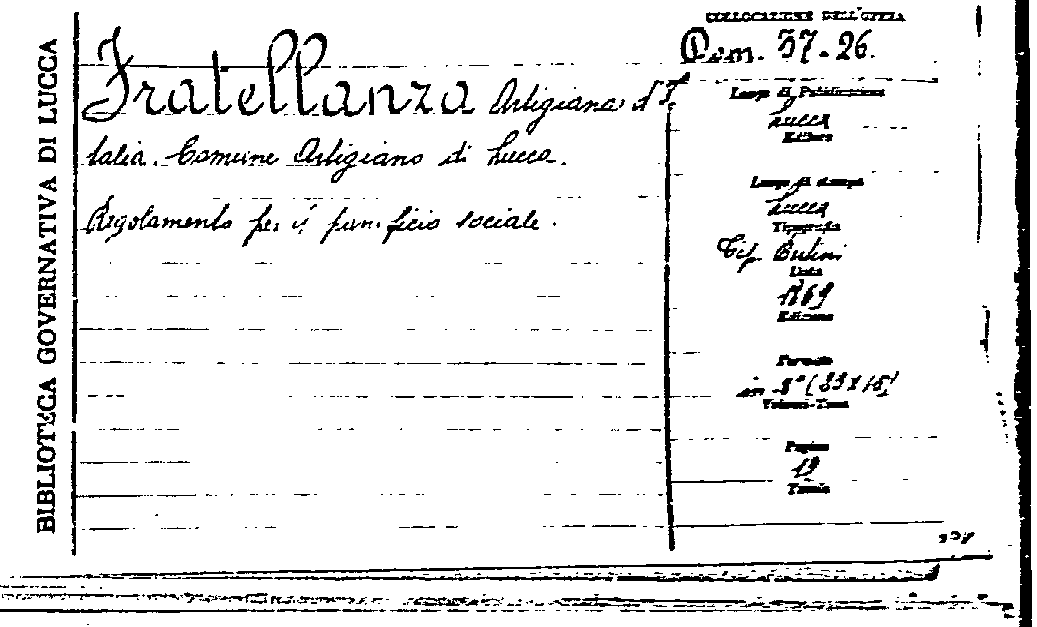 BIBLIOTECA GOVERNATIVA DI LUCCA
Fratellanza Artigiana d'I-
talia. Comune Artigiano di Lucca.
Regolamento per il panificio sociale.
COLLOCAZIONE DELL'OPERA
37-26.
Luogo di Pubblicazione
Lucca
Editore
Luogo di stampa
Lucca
Tipografia
Tip.
Data
1869
Edizione
Formato
in-8°
Volumi-Tomi
Pagine
Tavole